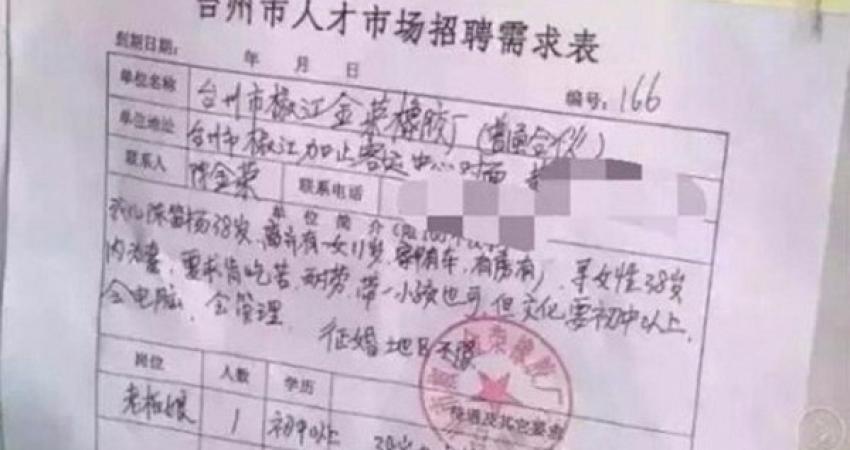 台州市人才市场招聘需求表
到期日期： 年 月 日
编号：166
单位名称 台州市椒江金荣橡胶厂（普通合伙）
单位地址 台州市椒江加止客运中心对面
联系人 陈金荣 联系电话
单位简介
38岁，离异有一女11岁，家有车，有房有厂，寻女性38岁
内为妻，要求肯吃苦，耐劳，带一小孩也可，但文化要初中以上，
会电脑，会管理。 征婚地区不限
岗位 人数 学历 待遇及其它要求
老板娘 1 初中以上 38岁
荣橡胶厂